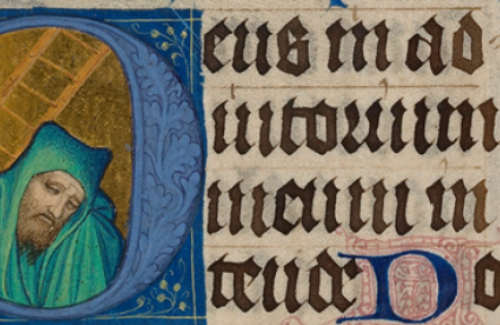 Deus in ad
iutorium
meum in
tende Do